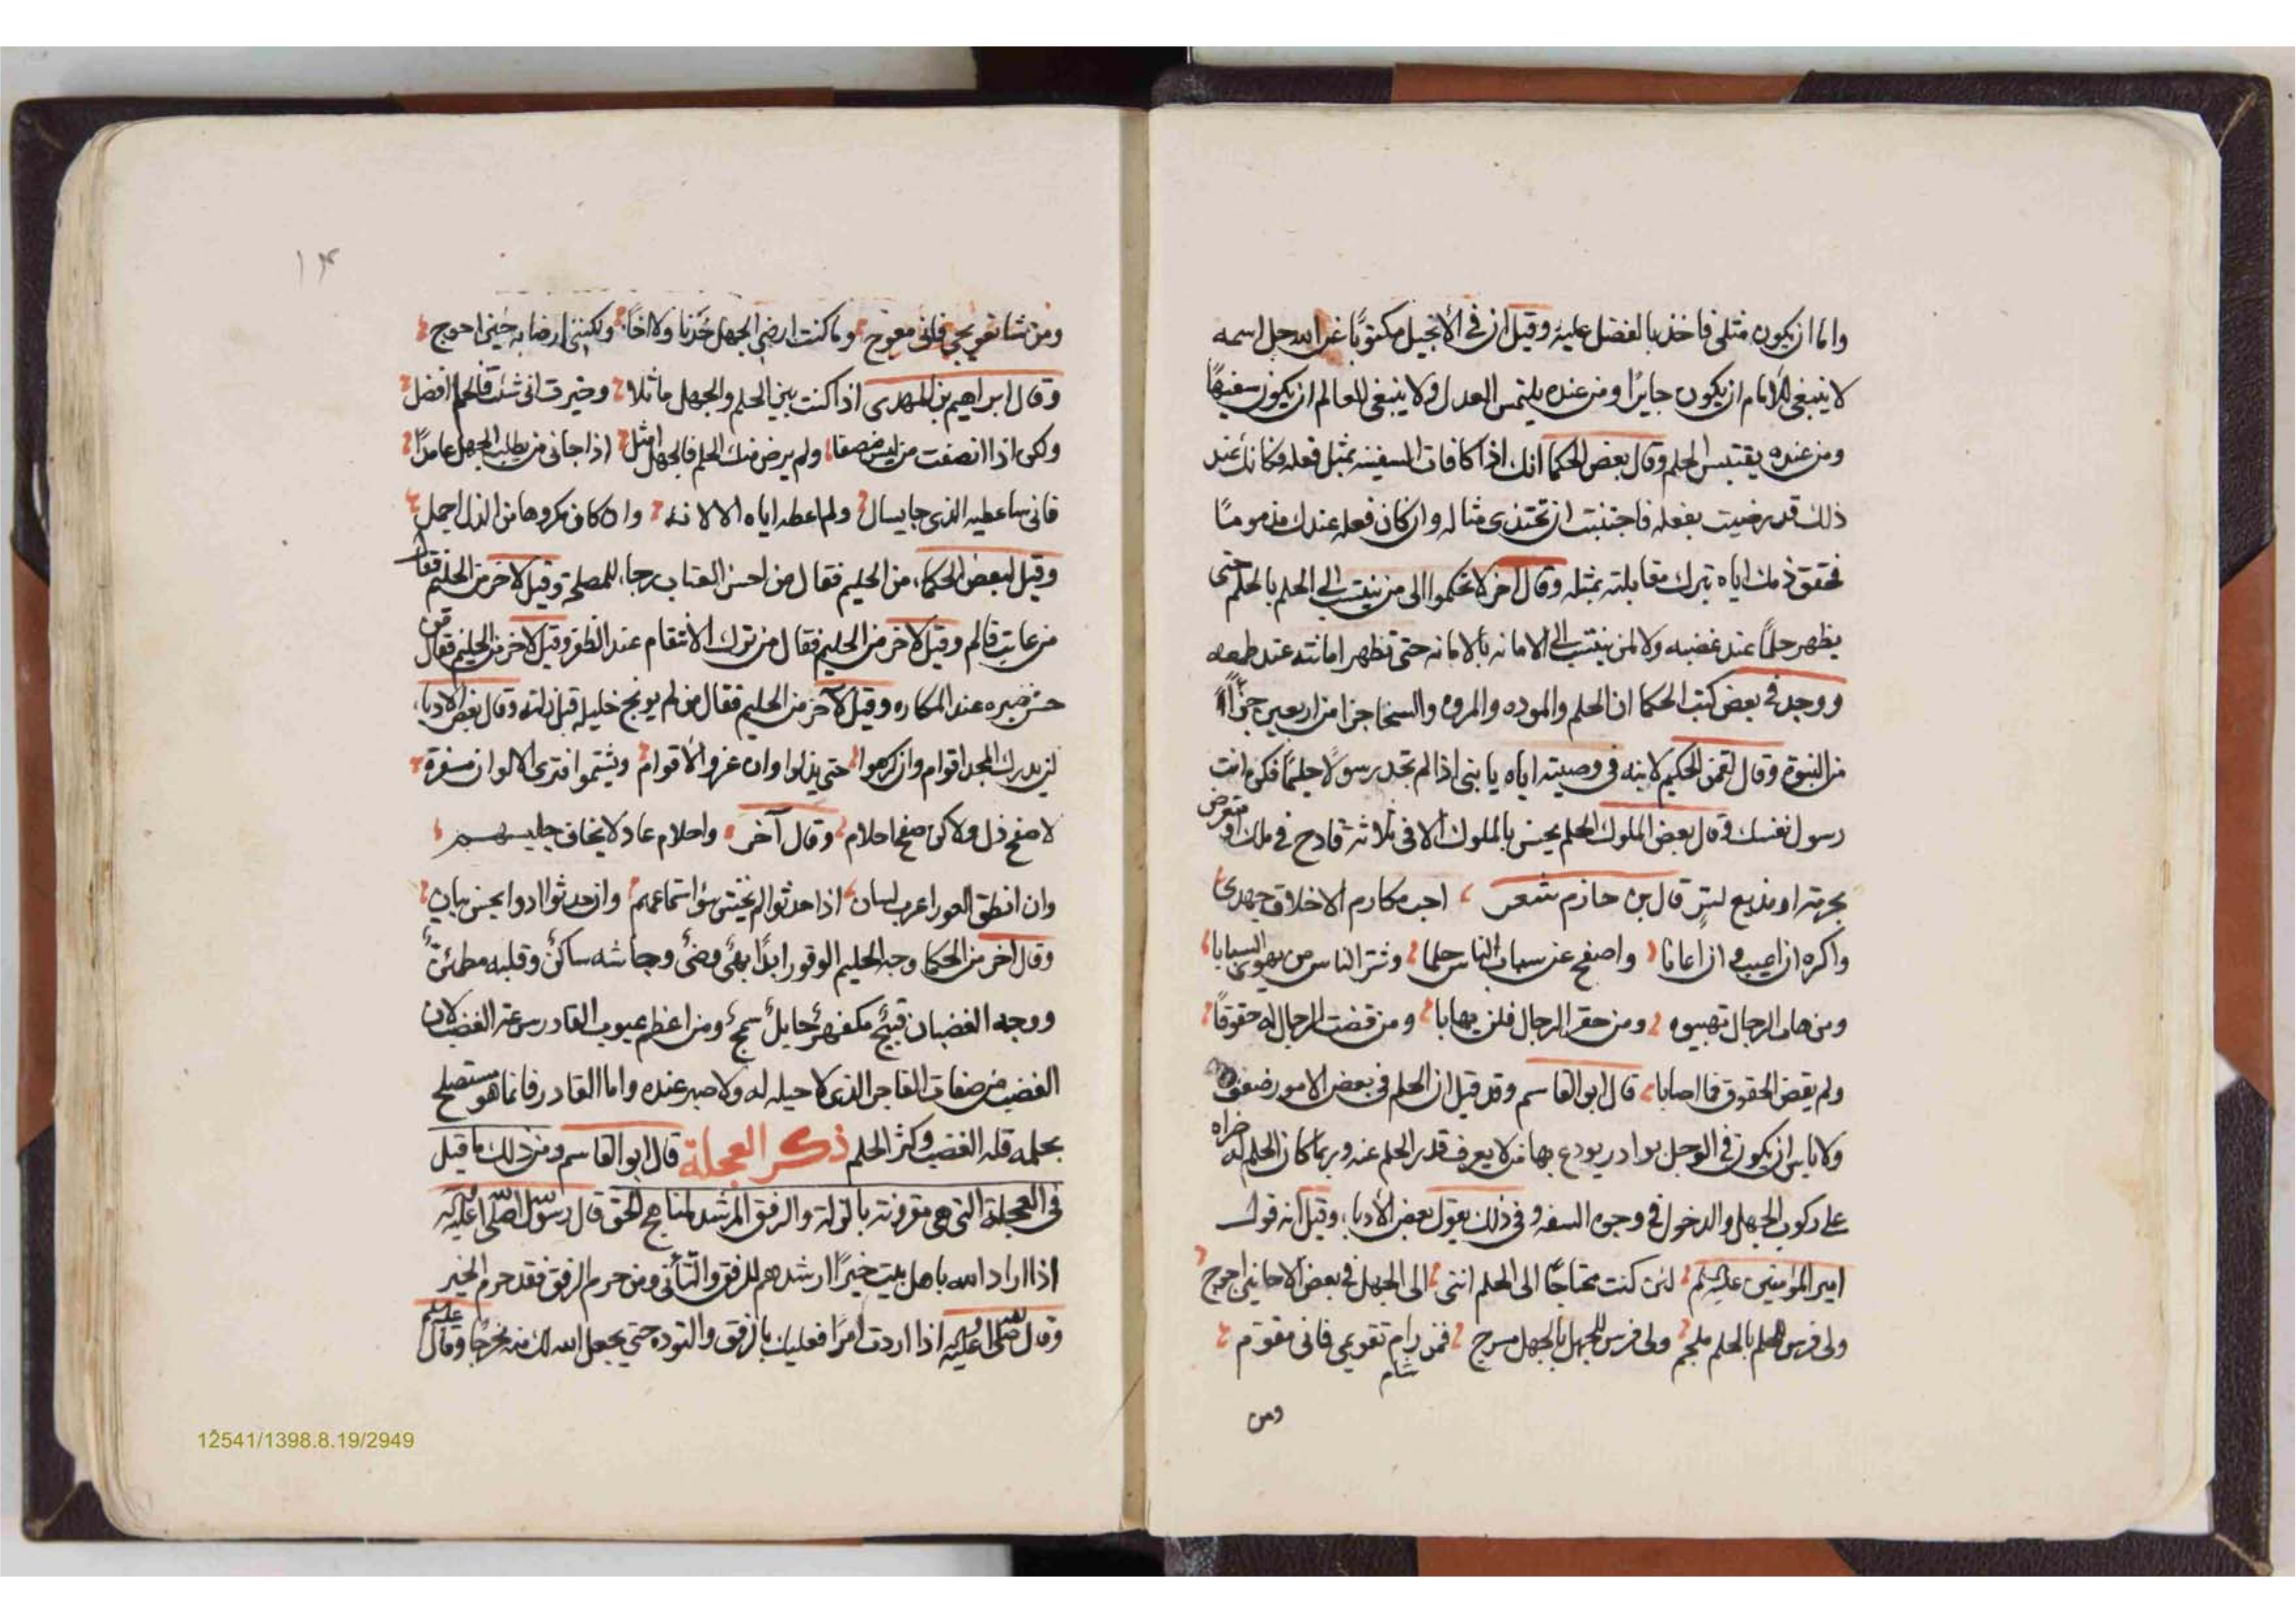 واما ان يكون مثلى فاخذ بالفضل عليه وقيل ان فى الانجيل مكتوبًا عن الله جل اسمه
لا ينبغى للامام ان يكون جايرًا ومن عنده يلتمس العدل ولا ينبغى للعالم ان يكون سفيهًا
ومن عنده يقتبس الحلم وقال بعض الحكما انك اذا كافات السفيه بمثل فعله فكانك عند
ذلك قد رضيت بفعله فاجتنبت ان تحتذى مثاله وان كان فعله عندك مذمومًا
فحقق ذمك اياه بترك مقابلته بمثله وقال اخر لا تحكموا الى من ينتسب الى الحلم بالحلم حتى
يظهر حلمًا عند غضبه ولا لمن ينتسب الى الامانه بالامانه حتى تظهر امانته عند طمعه
ووجد فى بعض كتب الحكما ان الحلم والموده والمروه والسخا جزا من اربعين جزًأ
من النبوة وقال لقمن الحكيم لابنه فى وصيته اياه يا بنى اذا لم تجد رسولًا حليمًا فكن انت
رسول نفسك وقال بعض الملوك الحلم يحسن بالملوك الا فى ثلاثه قادح فى ملك او متعرض
بحرمة او مذيع لسر قال بن حازم شعر احب مكارم الاخلاق جهدى
واكره ان اعيب و ان اعابا واصفح عن سباب الناس حلما وشر الناس من يهوى السبابا
ومن هاب الرجال تهيبوه ومن حقر الرجال فلن يهابا ومن قضت الرجال له حقوقًا
ولم يقض الحقوق فما اصابا قال ابو القاسم وقد قيل ان الحلم فى بعض الامور ضعف
ولا باس ان يكون فى الرجل بوادر يودع بها من لا يعرف قدر الحلم عنه وربما كان الحلم له ضراه
على ركوب الجهل والدخول فى وجوه السفه و فى ذلك يقول بعض الأدباء وقيل انه قول
امير المؤمنين عليه السلم لئن كنت محتاجًا الى الحلم اننى الى الجهل فى بعض الاحايين احوج
ولى فرس للحلم بالحلم ملجم ولى فرس للجهل بالجهل مسرج فمن رام تقويمى فانى مقوم
شام
ومن
١٤
ومن شا تعويجى فانى معوج وما كنت ارضى الجهل خدنا ولا اخًا ولكننى ارضا به حين احوج
وقال ابراهيم بن المهدى اذا كنت بين الحلم والجهل ماثلا وخيرت انى شئت فالحلم افضل
ولكن اذا انصفت من ليس منصفا ولم يرض منك الحلم فالجهل امثل اذا جانى من يطلب الجهل عامدًا
فانى ساعطيه الذى جا يسال ولم اعطه اياه الا لانه وان كان مكروها من الذل اجمل
وقيل لبعض الحكماء من الحليم فقال من احسن العتاب رجاء للمصلحة وقيل لاخر من الحليم فقال
من عاتب فالم وقيل لاخر من الحليم فقال من ترك الانتقام عند الظفر وقيل لاخر من الحليم فقال من
حسن صبره عند المكاره وقيل لآخر من الحليم فقال من لم يوبخ خليله قبل زلته وقال بعض الادباء
لن يدرك المجد اقوام وان كرموا حتى يذلوا وان عزوا لأقوام ويشتموا فترى الالوان مسفرة
لا صفح ذل ولاكن صفح احلام وقال آخر واحلام عاد لا يخاف جليسهم
وان انطق العورا غرب لسان اذا حدثوا لم يخش سؤ استماعهم وان حدثوا ادوا بحسن بيان
وقال اخر من الحكما وجه الحليم الوقور ابدًا بهىٌ وضىٌ وجاشه ساكنٌ وقلبه مطمئنٌ
ووجه الغضبان قبيحٌ مكفهرٌ حايلٌ سمجٌ ومن اعظم عيوب القادر سرعة الغضب لان
الغضب من صفات العاجز الذى لا حيله له ولا صبر عنده واما القادر فانما هو مستصلح
بحلمه قله الغضب وكثر الحلم ذكر العجلة قال ابو القاسم ومن ذلك ما قيل
فى العجلة التى هى مقرونة بالزلة والرفق المرشد لمناهج الحق قال رسول الله صلى الله عليه وآله
اذا اراد الله باهل بيت خيرًا ارشدهم للرفق والتأنى ومن حرم الرفق فقد حرم الخير
وقال صلى الله عليه وآله اذا اردت امرًا فعليك بالرفق والتوده حتى يجعل الله لك منه مخرجًا وقال عليه السلم
12541/1398.8.19/2949